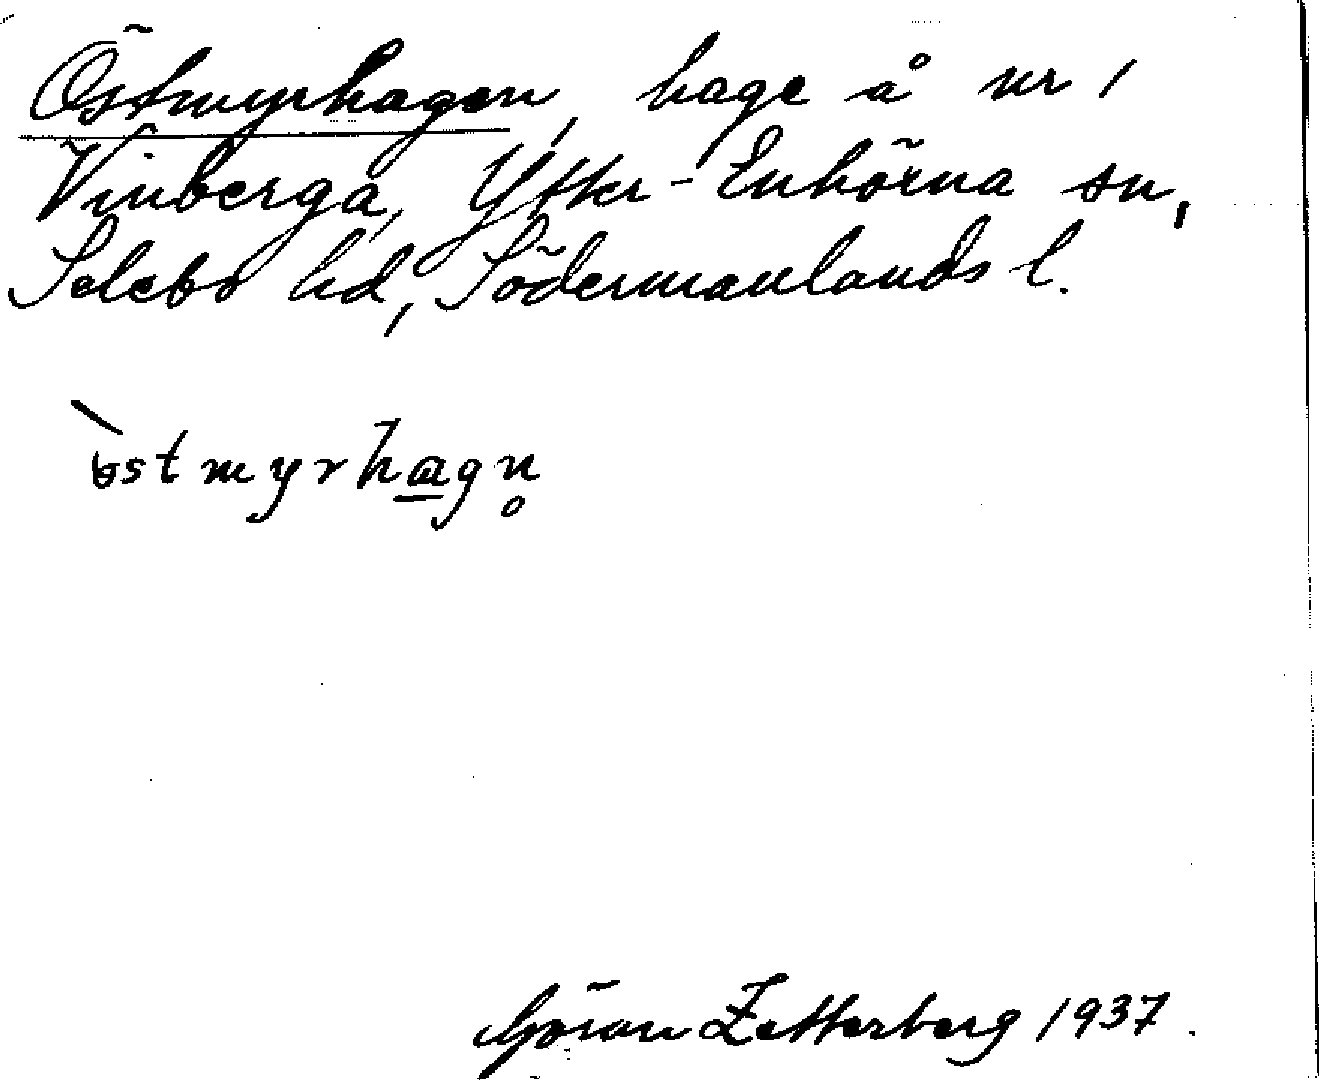 Östmyrhagen, hage å nr 1
Vinberga, Ytter-Enhörna sn,
Selebo hd, Södermanlands l.
`ɵstmyrhɑ̲gn̥
Göran Zetterberg 1937.